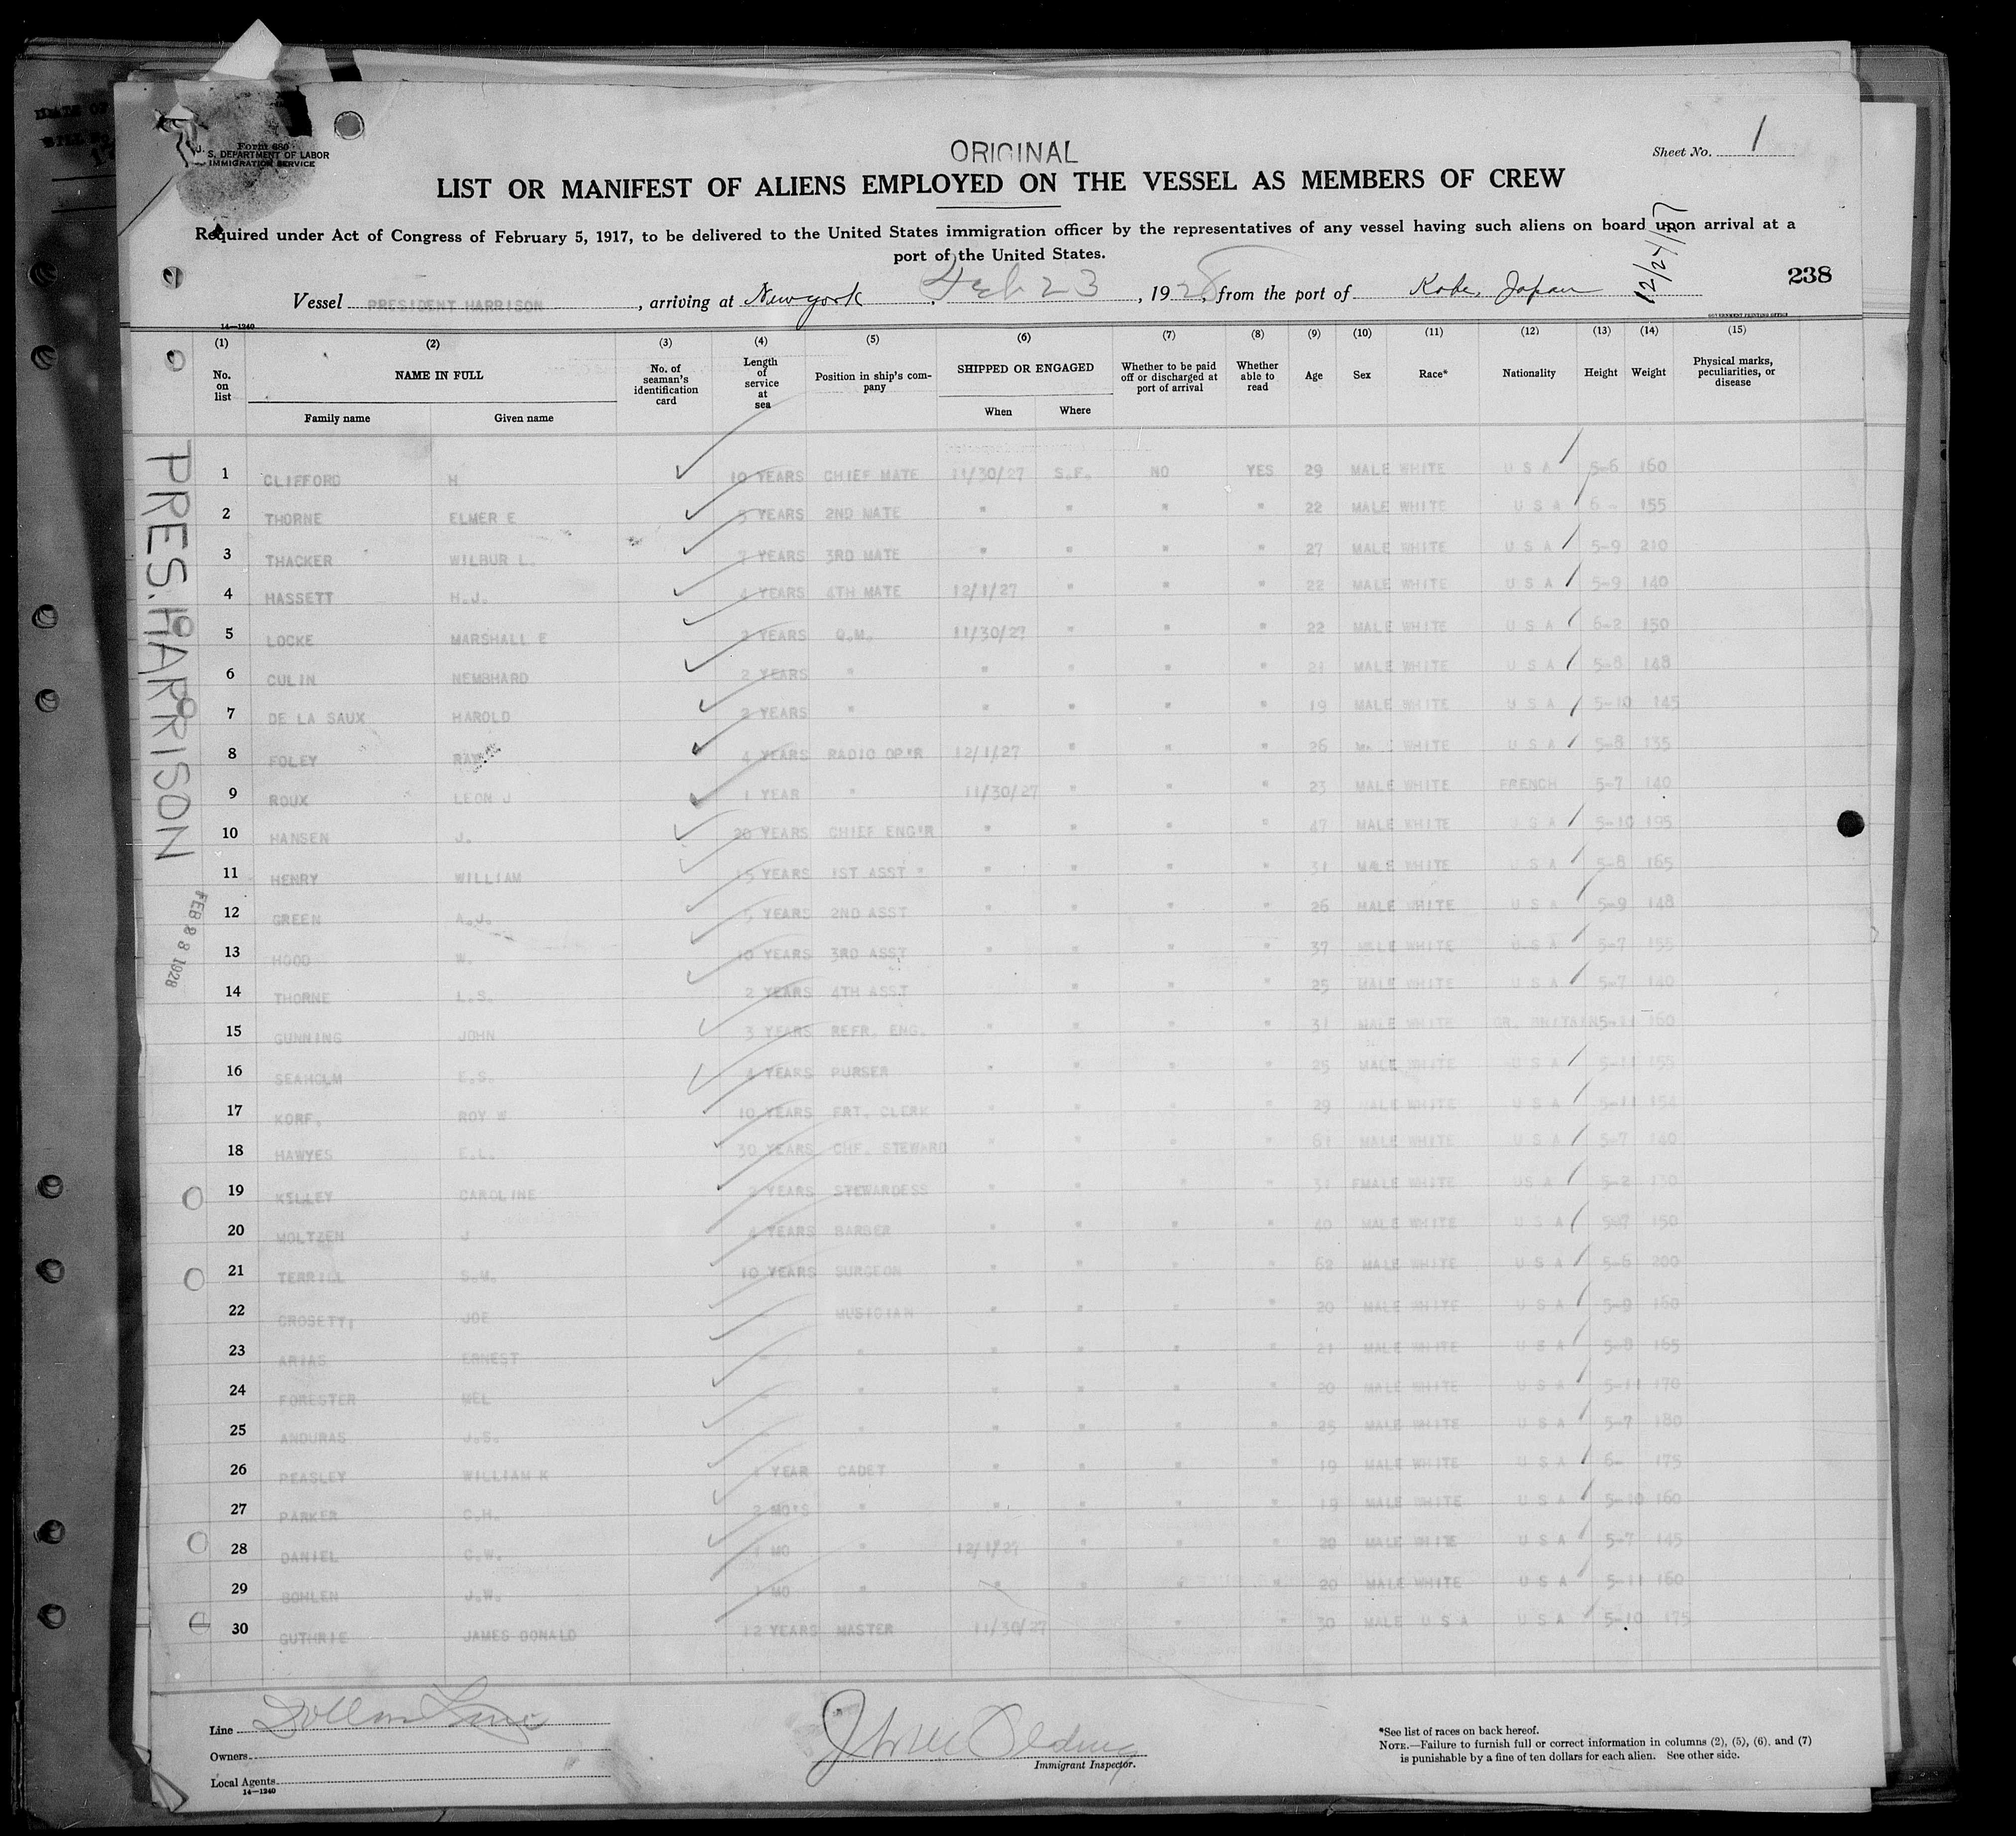 Form 680
U. S. DEPARTMENT OF LABOR
IMMIGRATION SERVICE
ORIGINAL
Sheet No. 1
LIST OR MANIFEST OF ALIENS EMPLOYED ON THE VESSEL AS MEMBERS OF CREW
Required under Act of Congress of February 5, 1917, to be delivered to the United States immigration officer by the representatives of any vessel having such aliens on board upon arrival at a
port of the United States.
12/27/17
238
Vessel PRESIDENT HARRISON, arriving at New york Feb 23, 1928, from the port of Kobe, Japan
14—1240
GOVERNMENT PRINTING OFFICE
(1) (2) (3) (4) (5) (6) (7) (8) (9) (10) (11) (12) (13) (14) (15)
No. on list NAME IN FULL Family name Given name No. of seaman's identification card Length of service at sea Position in ship's company SHIPPED OR ENGAGED When Where Whether to be paid off or discharged at port of arrival Whether able to read Age Sex Race* Nationality Height Weight Physical marks, peculiarities, or disease
PRES. HARRISON
FEB 28 1928
1 CLIFFORD H 10 YEARS CHIEF MATE 11/30/27 S.F. NO YES 29 MALE WHITE U S A 5-6 160
2 THORNE ELMER E 5 YEARS 2ND MATE " " " " 22 MALE WHITE U S A 6- 155
3 THACKER WILBUR L. 7 YEARS 3RD MATE " " " " 27 MALE WHITE U S A 5-9 210
4 HASSETT H.J. 4 YEARS 4TH MATE 12/1/27 " " " 22 MALE WHITE U S A 5-9 140
5 LOCKE MARSHALL E 2 YEARS Q.M. 11/30/27 " " " 22 MALE WHITE U S A 6-2 150
6 CULIN NEMBHARD 2 YEARS " " " " " 21 MALE WHITE U S A 5-8 148
7 DE LA SAUX HAROLD 2 YEARS " " " " " 19 MALE WHITE U S A 5-10 145
8 FOLEY RAY 4 YEARS RADIO OP'R 12/1/27 " " " 26 MALE WHITE U S A 5-8 135
9 ROUX LEON J 1 YEAR " 11/30/27 " " " 23 MALE WHITE FRENCH 5-7 140
10 HANSEN J. 20 YEARS CHIEF ENG'R " " " " 47 MALE WHITE U S A 5-10 195
11 HENRY WILLIAM 15 YEARS 1ST ASST " " " " " 31 MALE WHITE U S A 5-8 165
12 GREEN A.J. 5 YEARS 2ND ASST " " " " 26 MALE WHITE U S A 5-9 148
13 HOOD W. 10 YEARS 3RD ASST " " " " 37 MALE WHITE U.S A 5-7 155
14 THORNE L.S. 2 YEARS 4TH ASST " " " 25 MALE WHITE U S A 5-7 140
15 GUNNING JOHN 3 YEARS REFR. ENG. " " " " 31 MALE WHITE GR. BRITAIN 5-11 160
16 SEAHOLM E.S. 4 YEARS PURSER " " " " 25 MALE WHITE U S A 5-11 155
17 KORF, ROY W 10 YEARS FRT. CLERK " " " " 29 MALE WHITE U S A 5-11 154
18 HAWYES E.L. 30 YEARS CHF. STEWARD " " " " 61 MALE WHITE U S A 5-7 140
19 KELLEY CAROLINE 2 YEARS STEWARDESS " " " " 31 FMALE WHITE US A 5-2 130
20 MOLTZEN J 4 YEARS BARBER " " " " 40 MALE WHITE U S A 5-7 150
21 TERRILL S.M. 10 YEARS SURGEON " " " " 62 MALE WHITE U S A 5-6 200
22 GROSETTI JOE - MUSICIAN " " " " 20 MALE WHITE U S A 5-9 160
23 ARIAS ERNEST - " " " " " 21 MALE WHITE U S A 5-8 165
24 FORESTER MEL - " " " " " 20 MALE WHITE U S A 5-11 170
25 ANDURAS J.S. " " " " " 25 MALE WHITE U S A 5-7 180
26 PEASLEY WILLIAM K 1 YEAR CADET " " " " 19 MALE WHITE U S A 6- 175
27 PARKER C.H. 2 MO'S " " " " " 19 MALE WHITE U S A 5-10 160
28 DANIEL C.W. 1 MO " 12/1/27 " " " 20 MALE WHITE U S A 5-7 145
29 BOHLEN J.W. 1 MO " " " " " 20 MALE WHITE U S A 5-11 160
30 GUTHRIE JAMES DONALD 12 YEARS MASTER 11/30/27 " " 30 MALE U S A U S A 5-10 175
Line Dollar Line
Owners
Local Agents
14—1240
Immigrant Inspector.
*See list of races on back hereof.
NOTE.—Failure to furnish full or correct information in columns (2), (5), (6) and (7)
is punishable by a fine of ten dollars for each alien. See other side.